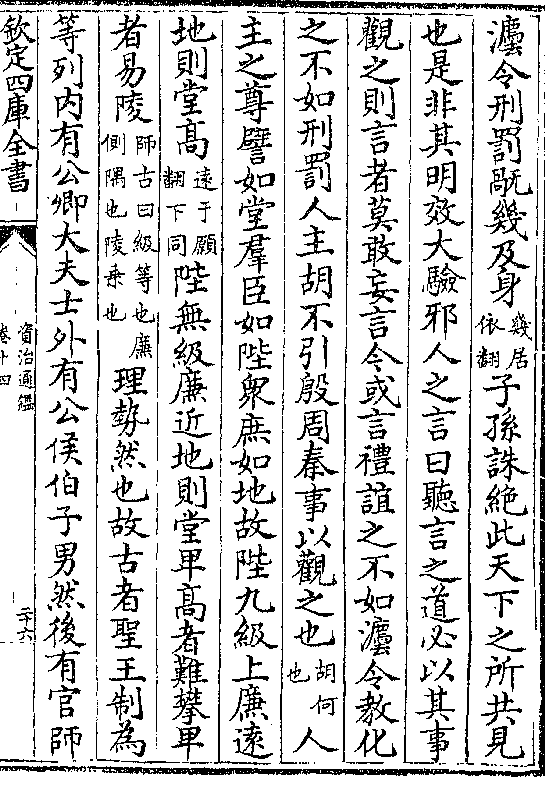 灋令刑罰䣛幾及身幾居依翻子孫誅絶此天下之所共見
也是非其明效大驗邪人之言曰聽言之道必以其事
觀之則言者莫敢妄言今或言禮誼之不如灋令教化
之不如刑罰人主胡不引殷周秦事以觀之也胡何也人
主之尊譬如堂羣臣如陛衆庶如地故陛九級上廉逺
地則堂髙逺于願翻下同陛無級廉近地則堂卑髙者難攀卑
者易陵師古曰級等也廉側隅也陵乗也理勢然也故古者聖王制為
等列内有公卿大夫士外有公侯伯子男然後有官師
欽定四庫全書
資治通鑑
卷十四
二十六